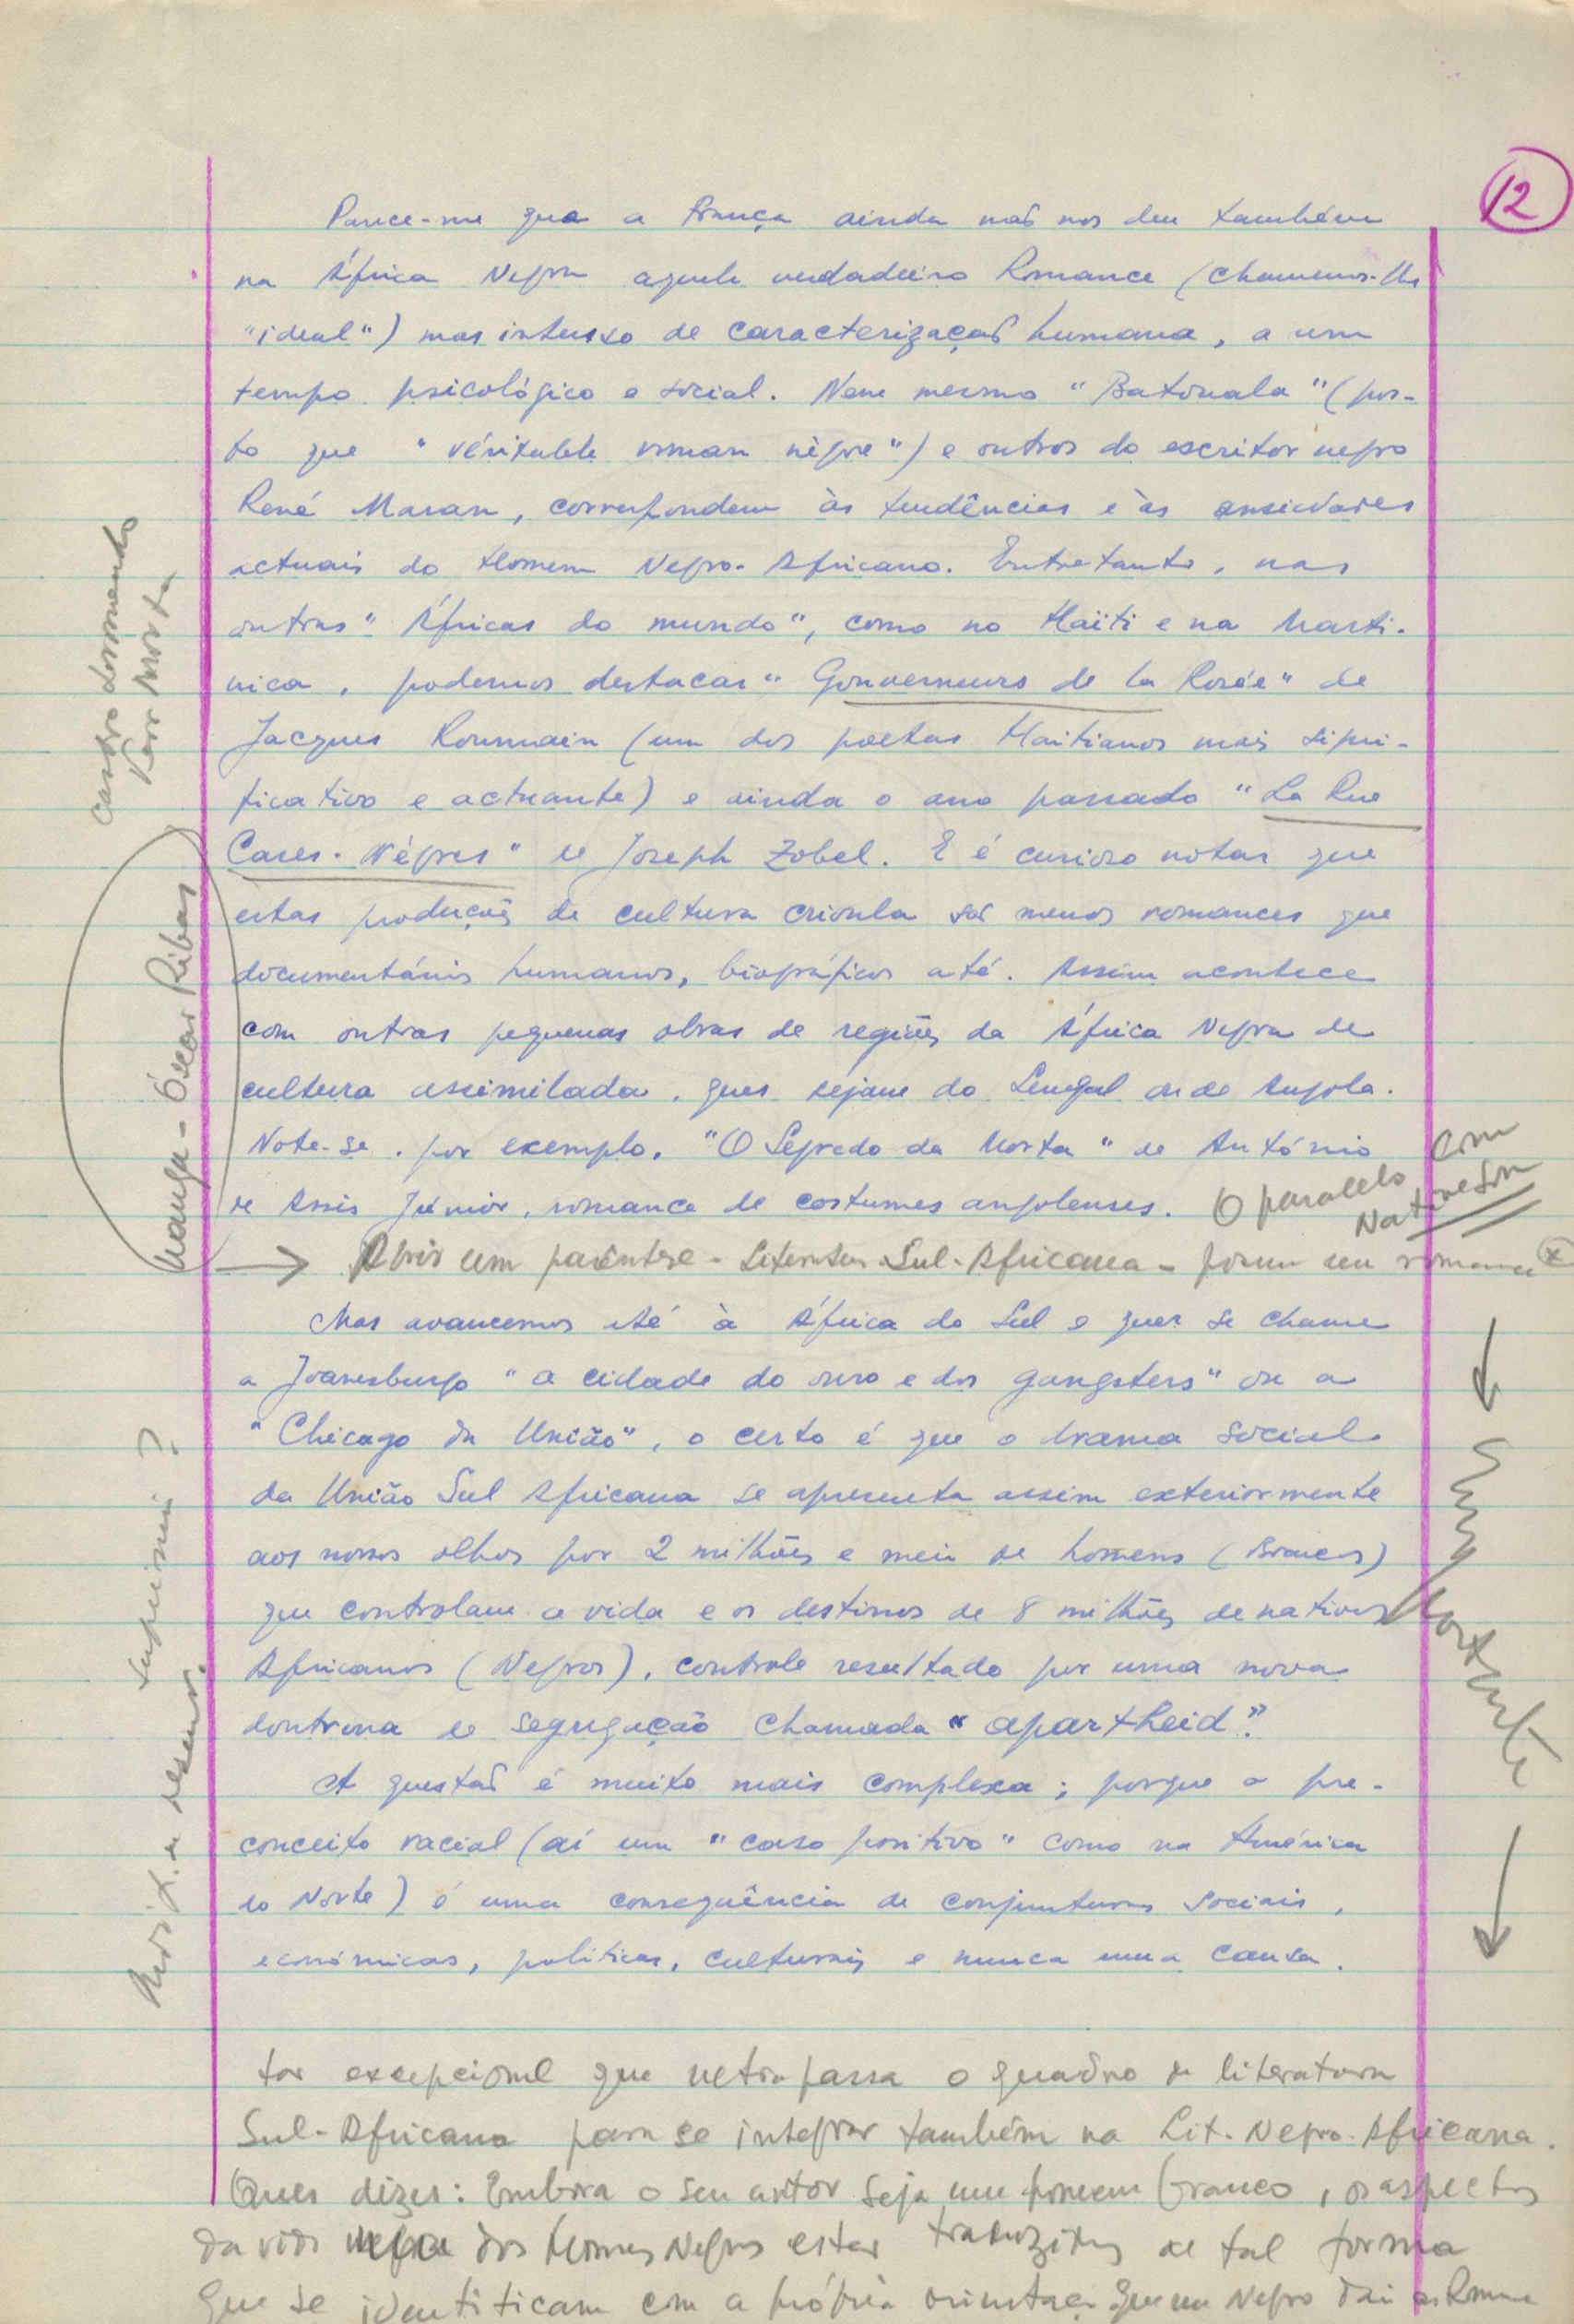 12
Parece-me que a França ainda não nos deu também
na África Negra aquele verdadeiro Romance (chamemos-lhe
"ideal") mas intenso de caracterização humana, a um
tempo psicológico e social. Nem mesmo "Batouala" (pos-
to que "véritable roman nègre") e outros do escritor negro
René Maran, correspondem às tendências e às ansiedades
actuais do Homem Negro-Africano. Entretanto, nas
outras "Áfricas do mundo", como no Haïti e na Marti-
nica, podemos destacar "Gouverneurs de la Rosée" de
Jacques Roumain (um dos poetas Haitianos mais signi-
ficativo e actuante) e ainda o ano passado "La Rue
Cases-Nègres" de Joseph Zobel. E é curioso notar que
estas produções de cultura crioula são menos romances que
documentários humanos, biográficos até. Assim acontece
com outras pequenas obras de regiões da África Negra de
cultura assimilada, quer sejam do Senegal ou de Angola.
Note-se, por exemplo, "O Segredo da Morta" de António
de Assis Júnior, romance de costumes angolenses.
O paralelo com
Native Son
Castro Soromenho
Terra Morta
Uanga - Óscar Ribas
→ Abrir um parêntese - Literatura Sul-Africana - porem um romance (x)
Mas avancemos até à África do Sul e quer se chame
a Joanesburgo "a cidade do ouro e dos gangsters" ou a
"Chicago da União", o certo é que o drama social
da União Sul Africana se apresenta assim exteriormente
aos nossos olhos por 2 milhões e meio de homens (Brancos)
que controlam a vida e os destinos de 8 milhões de nativos
Africanos (Negros), controle resultado por uma nova
doutrina de segregação chamada "apartheid".
A questão é muito mais complexa; porque o pre-
conceito racial (aí um "caso positivo" como na América
do Norte) é uma consequência de conjunturas sociais,
económicas, políticas, culturais e nunca uma causa.
suprimir?
importante
tor excepcional que ultrapassa o quadro da literatura
Sul-Africana para se integrar também na Lit. Negro-Africana.
Quer dizer: Embora o seu autor seja um homem branco, os aspectos
da vida dos Homens Negros estão traduzidos de tal forma
que se identificam com a própria orientação que um Negro daria ao Romance